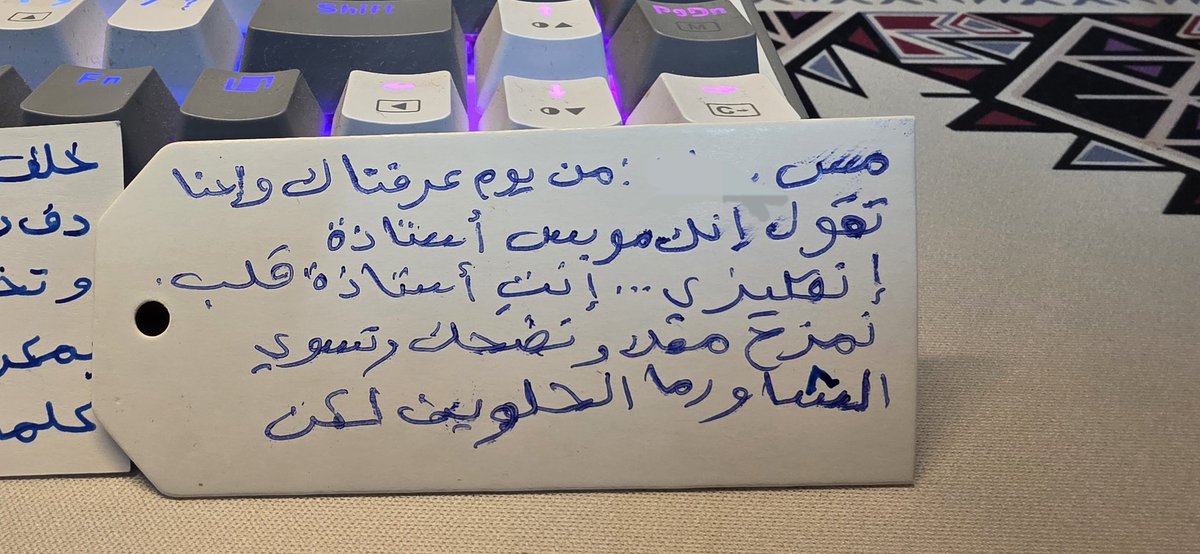 Shift
PgDn
Fn
مس. : من يوم عرفناك وإحنا
نقول إنك مو بس أستاذة
إنقليزي... إنتِ أستاذة قلب.
نمزح معك ونضحك وتسوي
الشاورما الحلوين لكن
خلف